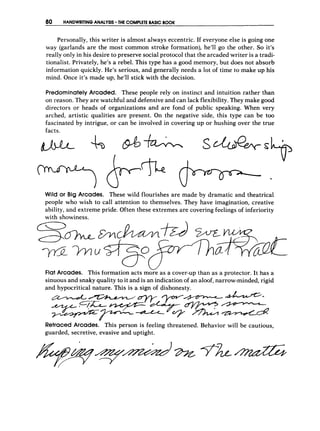 60 HANDWRITING ANALYSIS - THE COMPLETE BASIC BOOK
Personally, this writer is almost always eccentric. If everyone else is going one
way (garlands are the most common stroke formation), he'll go the other. So it's
really only in his desire to preserve social protocol that the arcaded writer is a tradi-
tionalist. Privately, he's a rebel. This type has a good memory, but does not absorb
information quickly. He's serious, and generally needs a lot of time to make up his
mind. Once it's made up, he'll stick with the decision.
Predominately Arcaded. These people rely on instinct and intuition rather than
on reason. They are watchful and defensive and can lack flexibility. They make good
directors or heads of organizations and are fond of public speaking. When very
arched, artistic qualities are present. On the negative side, this type can be too
fascinated by intrigue, or can be involved in covering up or hushing over the true
facts.
to obtain Scholarship
money for the
Wild or Big Arcades. These wild flourishes are made by dramatic and theatrical
people who wish to call attention to themselves. They have imagination, creative
ability, and extreme pride. Often these extremes are covering feelings of inferiority
with showiness.
Some Enchanted Evening
must go for that walk
Flat Arcades. This formation acts more as a cover-up than as a protector. It has a
sinuous and snaky quality to it and is an indication of an aloof, narrow-minded, rigid
and hypocritical nature. This is a sign of dishonesty.
Retraced Arcades. This person is feeling threatened. Behavior will be cautious,
guarded, secretive, evasive and uptight.
Keeping my mind on the matter